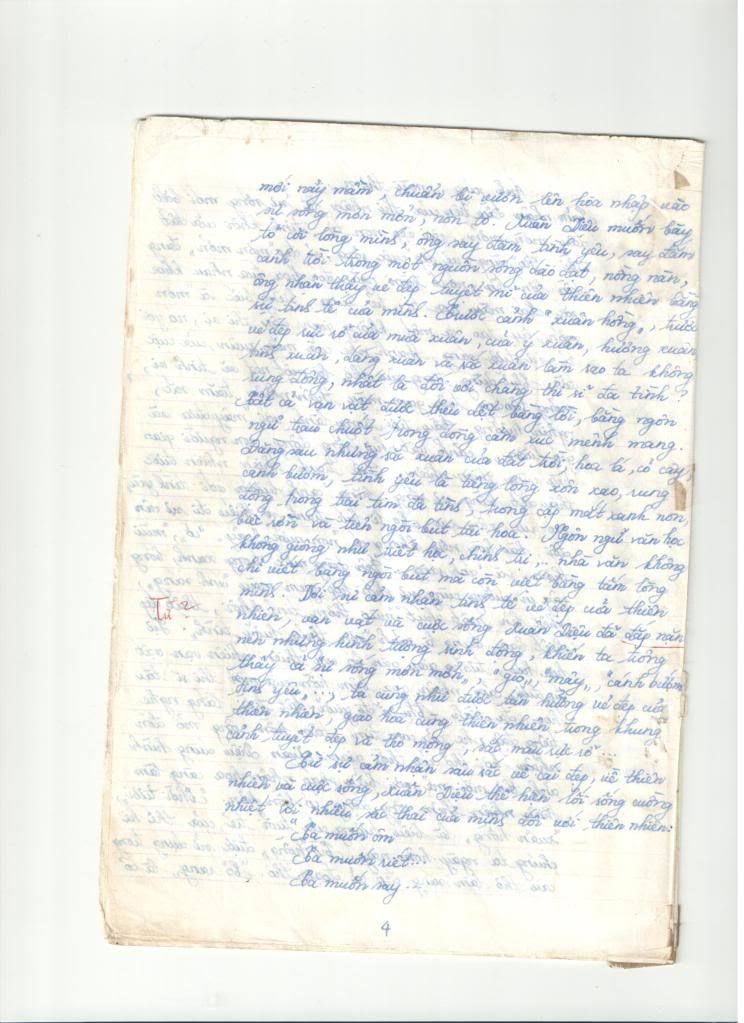 mới nảy mầm chuẩn bị vươn lên hòa nhập vào
sự sống mơn mởn, non tơ. Xuân Diệu muốn bày
tỏ cõi lòng mình, ông say đắm tình yêu, say đắm
cảnh trời trong một nguồn sống dào dạt, nồng nàn,
ông nhận thấy vẻ đẹp tuyệt mĩ của thiên nhiên bằng
sự tinh tế của mình. Trước cảnh "xuân hồng", trước
vẻ đẹp rực rỡ của mùa xuân, của ý xuân, hương xuân
tình xuân, dáng xuân và sắc xuân làm sao ta không
rung động, nhất là đối với chàng thi sĩ đa tình?
Tất cả vạn vật được thêu dệt bằng lời, bằng ngôn
ngữ trau chuốt trong dòng cảm xúc mênh mang.
Đằng sau những sắc xuân của đất trời, hoa lá, cỏ cây,
cánh bướm, tình yêu là tiếng lòng xôn xao, rung
động trong trái tim đa tình, trong cặp mắt xanh non,
biếc rờn và trên ngòi bút tài hoa. Ngôn ngữ văn học
không giống như triết học, chính trị,... nhà văn không
chỉ viết bằng ngòi bút mà còn viết bằng tấm lòng
mình. Với sự cảm nhận tinh tế vẻ đẹp của thiên
Từ?
nhiên, vạn vật và cuộc sống Xuân Diệu đã đắp nặn
nên những hình tượng sinh động, khiến ta trông
thấy cả "sự sống mơn mởn", "gió", "mây", "cánh bướm
tình yêu"..., ta cũng như được tận hưởng vẻ đẹp của
thiên nhiên, giao hòa cùng thiên nhiên trong khung
cảnh tuyệt đẹp và thơ mộng, sắc màu rực rỡ...
Từ sự cảm nhận sâu sắc về cái đẹp, về thiên
nhiên và cuộc sống, Xuân Diệu thể hiện lối sống cuồng
nhiệt với nhiều sắc thái của mình đối với thiên nhiên:
"Ta muốn ôm
Ta muốn riết...
Ta muốn say...
4